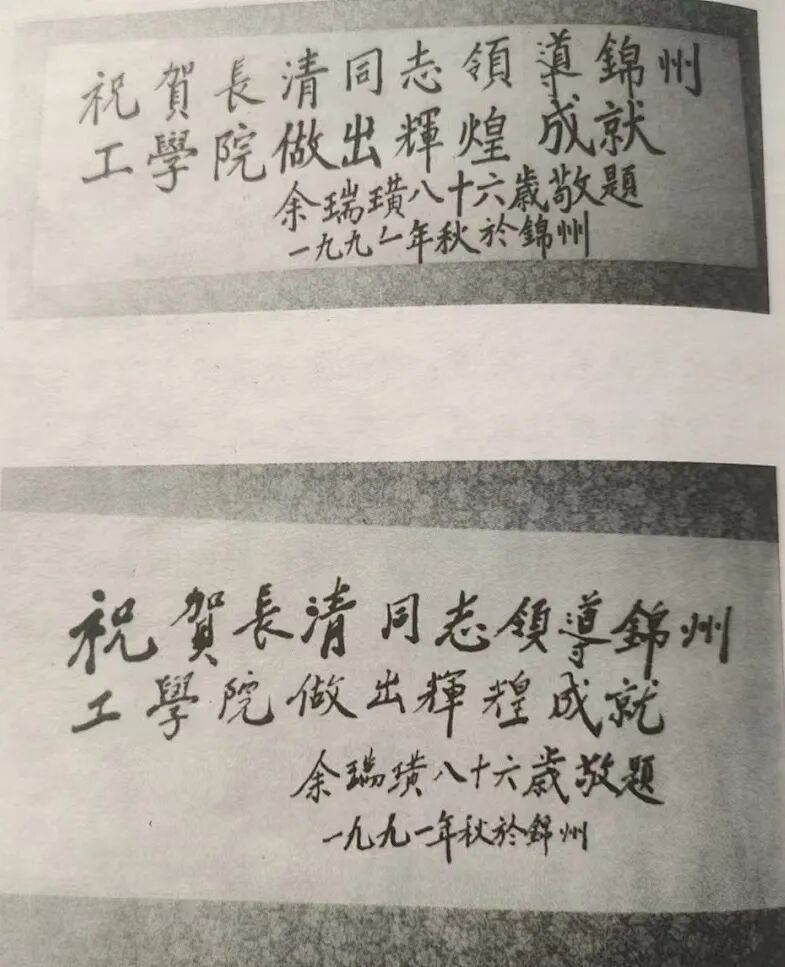 祝賀長清同志領導錦州
工學院做出輝煌成就
余瑞璜八十六歲敬題
一九九一年秋於錦州
祝賀長清同志領導錦州
工學院做出輝煌成就
余瑞璜八十六歲敬題
一九九一年秋於錦州